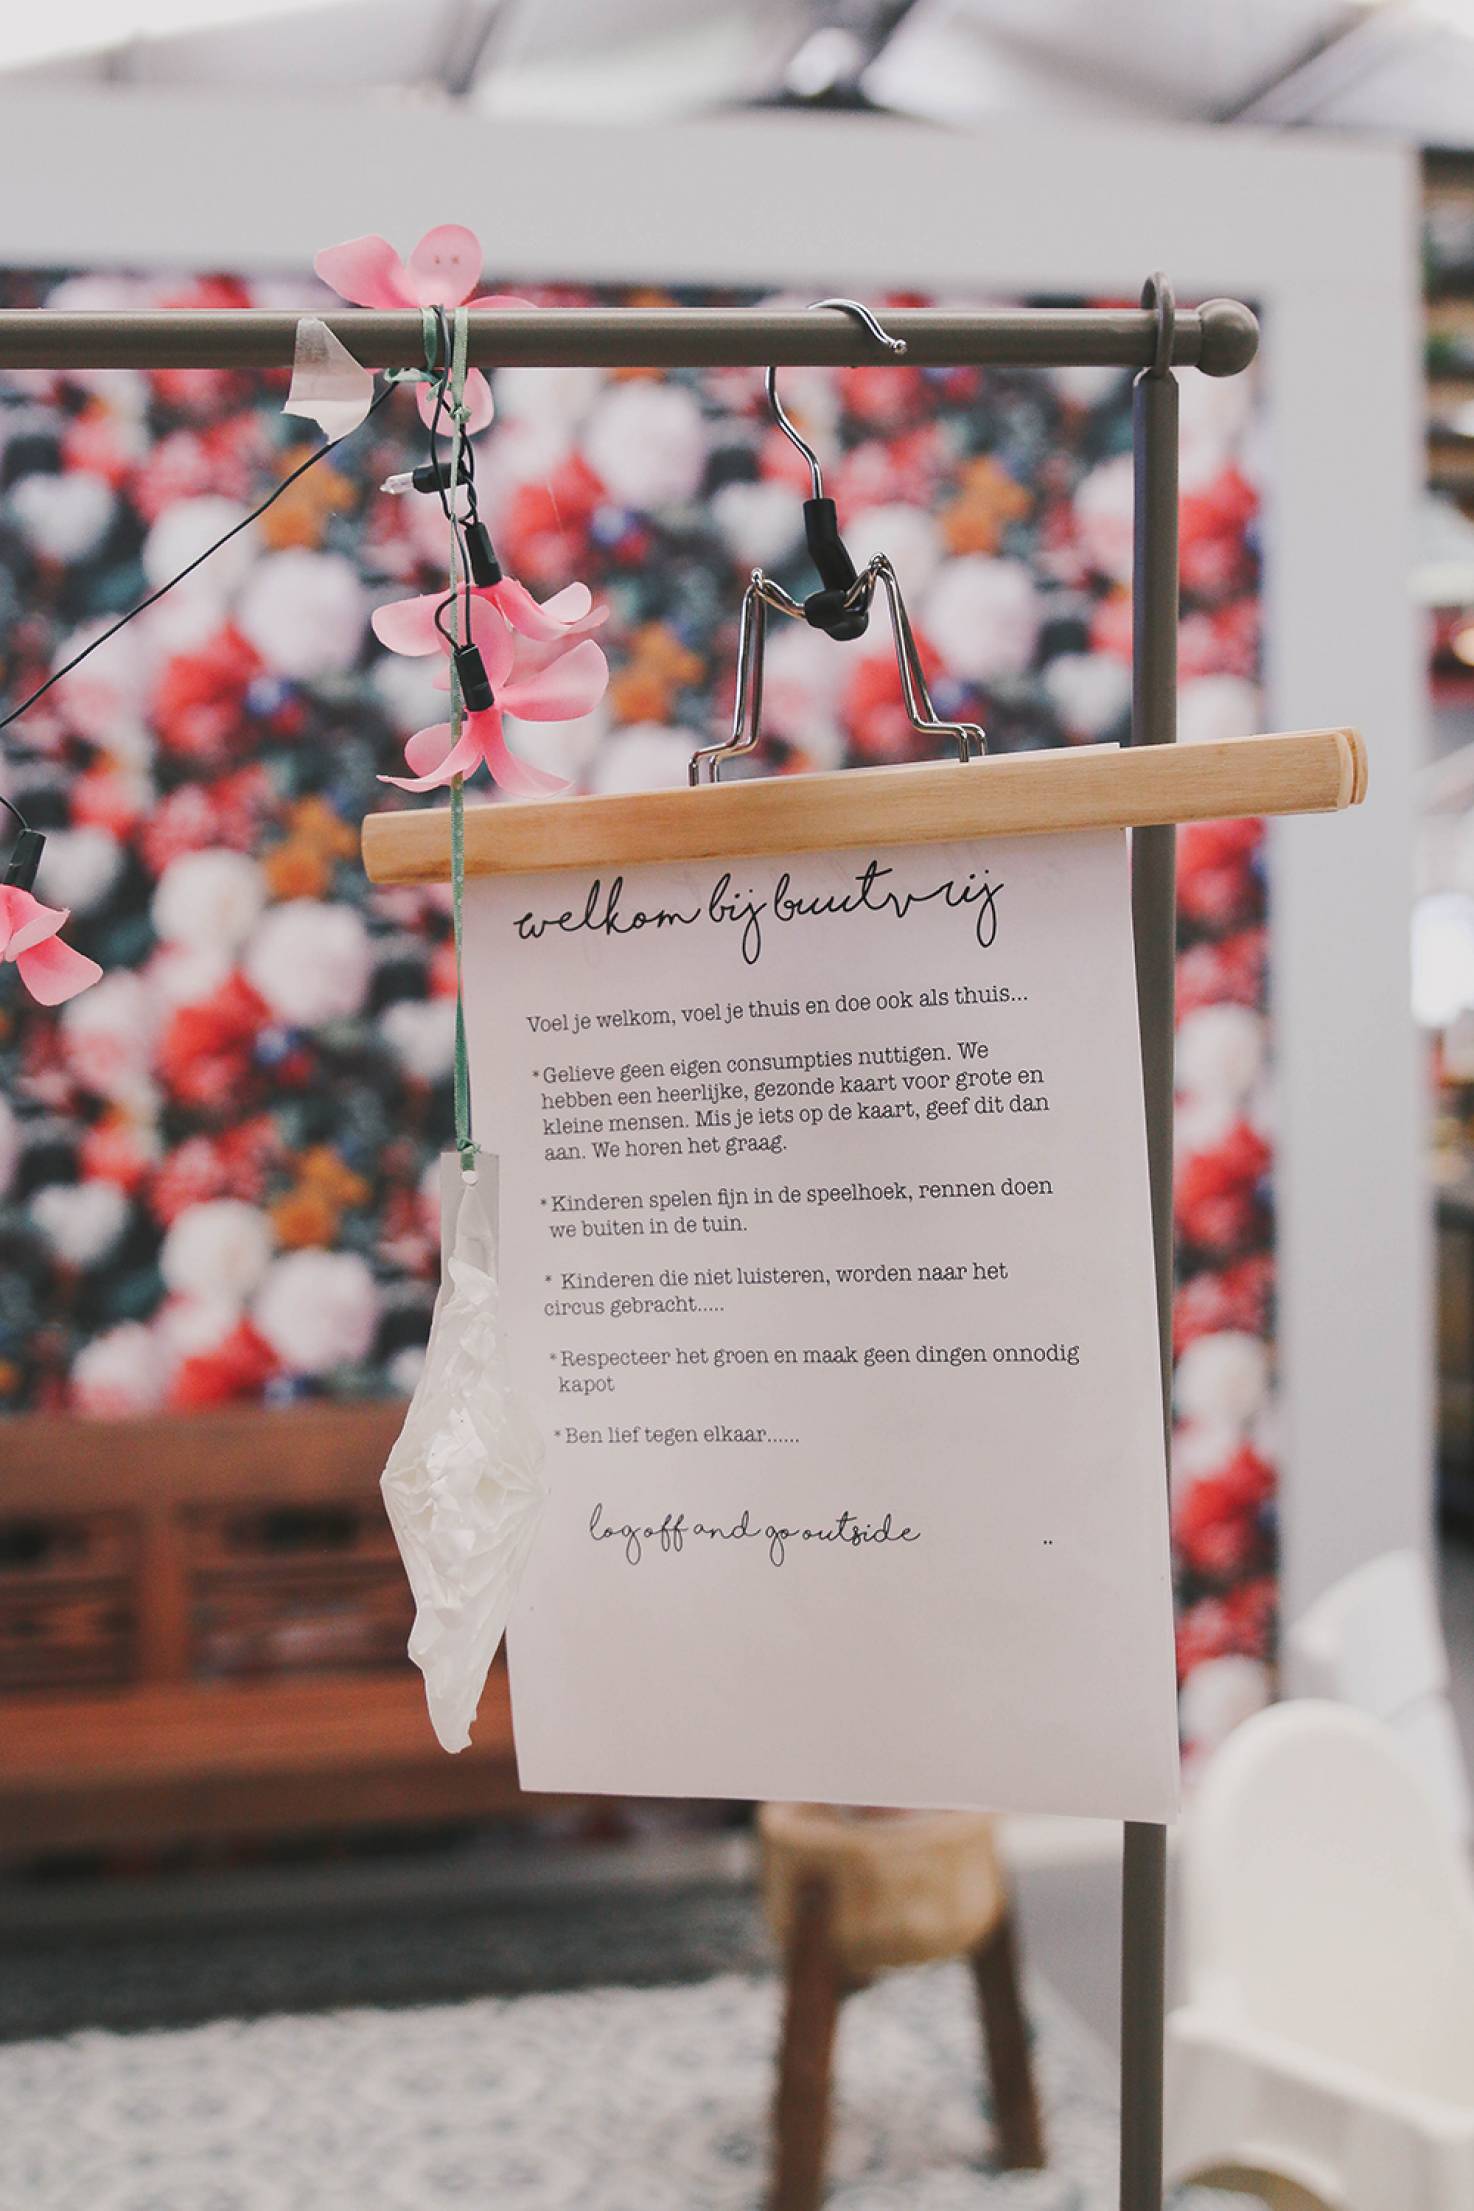 welkom bij buutvrij
Voel je welkom, voel je thuis en doe ook als thuis...
*Gelieve geen eigen consumpties nuttigen. We
hebben een heerlijke, gezonde kaart voor grote en
kleine mensen. Mis je iets op de kaart, geef dit dan
aan. We horen het graag.
*Kinderen spelen fijn in de speelhoek, rennen doen
we buiten in de tuin.
* Kinderen die niet luisteren, worden naar het
circus gebracht.....
*Respecteer het groen en maak geen dingen onnodig
kapot
*Ben lief tegen elkaar......
log off and go outside ..